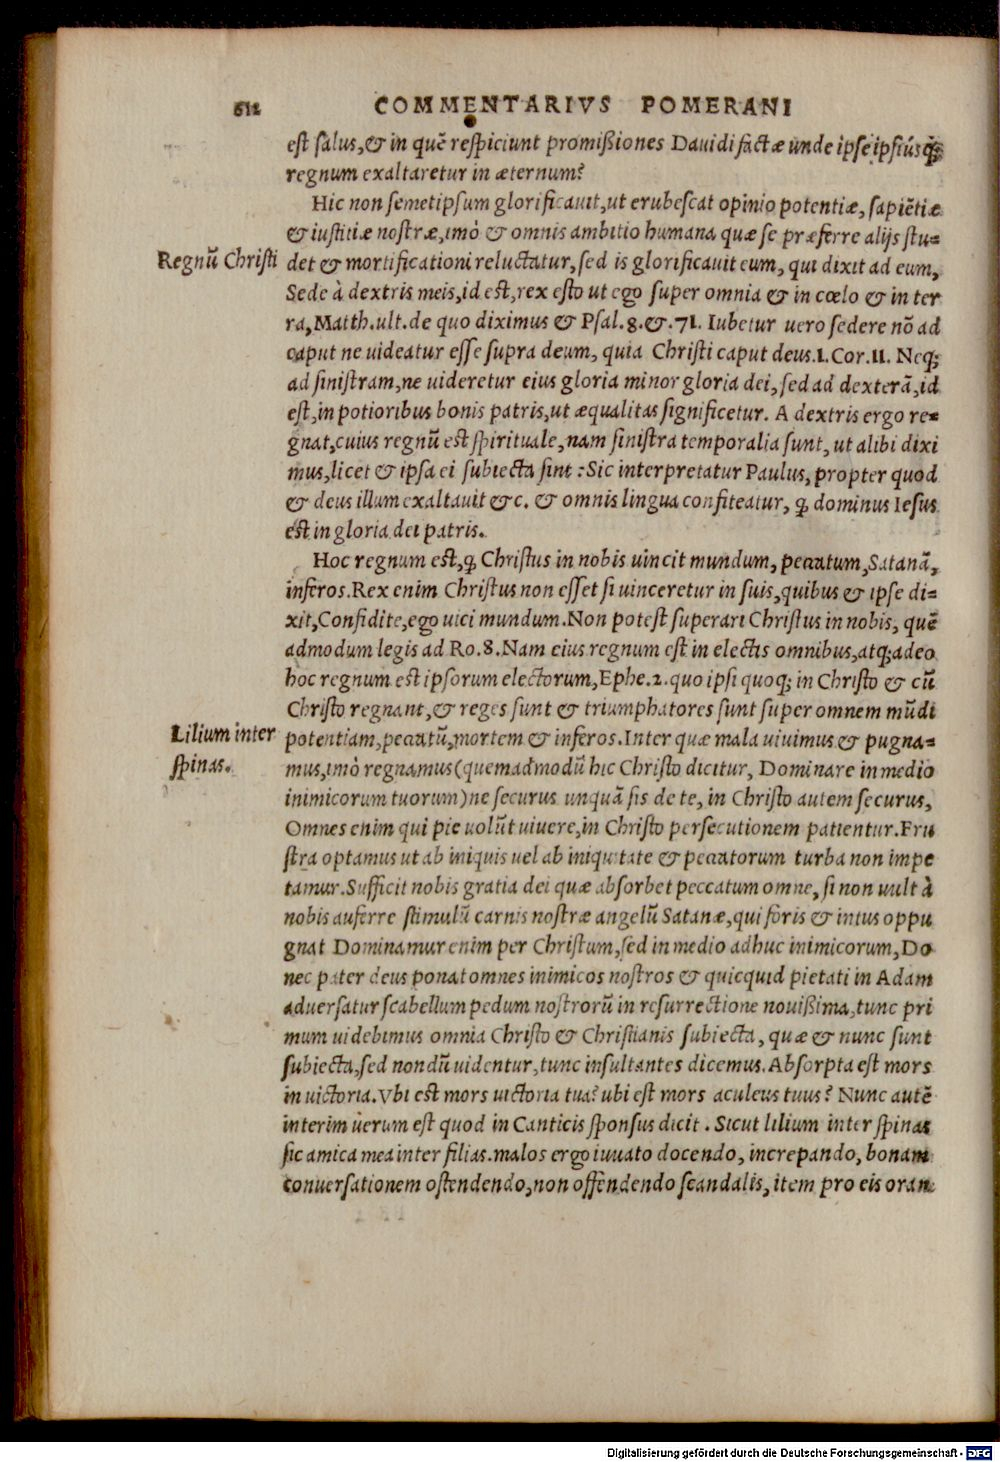 612 COMMENTARIVS POMERANI
est salus, & in quē respiciunt promißiones Dauidi factæ unde ipse ipsiusq́;
regnum exaltaretur in æternum?
Hic non semetipsum glorificauit, ut erubescat opinio potentiæ, sapiētiæ
& iustitiæ nostræ, imò & omnis ambitio humana quæ se præferre alijs stu=
Regnū Christi
det & mortificationi reluctatur, sed is glorificauit eum, qui dixit ad eum,
Sede à dextris meis, id est, rex esto ut ego super omnia & in cœlo & in ter
ra, Matth. ult. de quo diximus & Psal. 8. &. 71. Iubetur uero sedere nō ad
caput ne uideatur esse supra deum, quia Christi caput deus. 1. Cor. 11. Neq;
ad sinistram, ne uideretur eius gloria minor gloria dei, sed ad dexterā, id
est, in potioribus bonis patris, ut æqualitas significetur. A dextris ergo re=
gnat, cuius regnū est spirituale, nam sinistra temporalia sunt, ut alibi dixi
mus, licet & ipsa ei subiecta sint: Sic interpretatur Paulus, propter quod
& deus illum exaltauit &c. & omnis lingua confiteatur, q̨ dominus Iesus
est in gloria dei patris.
Hoc regnum est, q̨ Christus in nobis uincit mundum, peccatum, Satanā,
inferos. Rex enim Christus non esset si uinceretur in suis, quibus & ipse di=
xit, Confidite, ego uici mundum. Non potest superari Christus in nobis, quē
admodum legis ad Ro. 8. Nam eius regnum est in electis omnibus, atq; adeo
hoc regnum est ipsorum electorum, Ephe. 2. quo ipsi quoq; in Christo & cū
Christo regnant, & reges sunt & triumphatores sunt super omnem mūdi
Lilium inter
spinas.
potentiam, peccatū, mortem & inferos. Inter quæ mala uiuimus & pugna=
mus, imò regnamus (quemadmodū hic Christo dicitur, Dominare in medio
inimicorum tuorum) ne securus unquā sis de te, in Christo autem securus,
Omnes enim qui pie uolūt uiuere, in Christo persecutionem patientur. Fru
stra optamus ut ab iniquis uel ab iniquitate & peccatorum turba non impe
tamur. Sufficit nobis gratia dei quæ absorbet peccatum omne, si non uult à
nobis auferre stimulū carnis nostræ angelū Satanæ, qui foris & intus oppu
gnat Dominamur enim per Christum, sed in medio adhuc inimicorum, Do
nec pater deus ponat omnes inimicos nostros & quicquid pietati in Adam
aduersatur scabellum pedum nostrorū in resurrectione nouißima, tunc pri
mum uidebimus omnia Christo & Christianis subiecta, quæ & nunc sunt
subiecta, sed nondū uidentur, tunc insultantes dicemus. Absorpta est mors
in uictoria. Vbi est mors uictoria tua? ubi est mors aculeus tuus? Nunc autē
interim uerum est quod in Canticis sponsus dicit. Sicut lilium inter spinas
sic amica mea inter filias. malos ergo iuuato docendo, increpando, bonam
conuersationem ostendendo, non offendendo scandalis, item pro eis oran
Digitalisierung gefördert durch die Deutsche Forschungsgemeinschaft - DFG